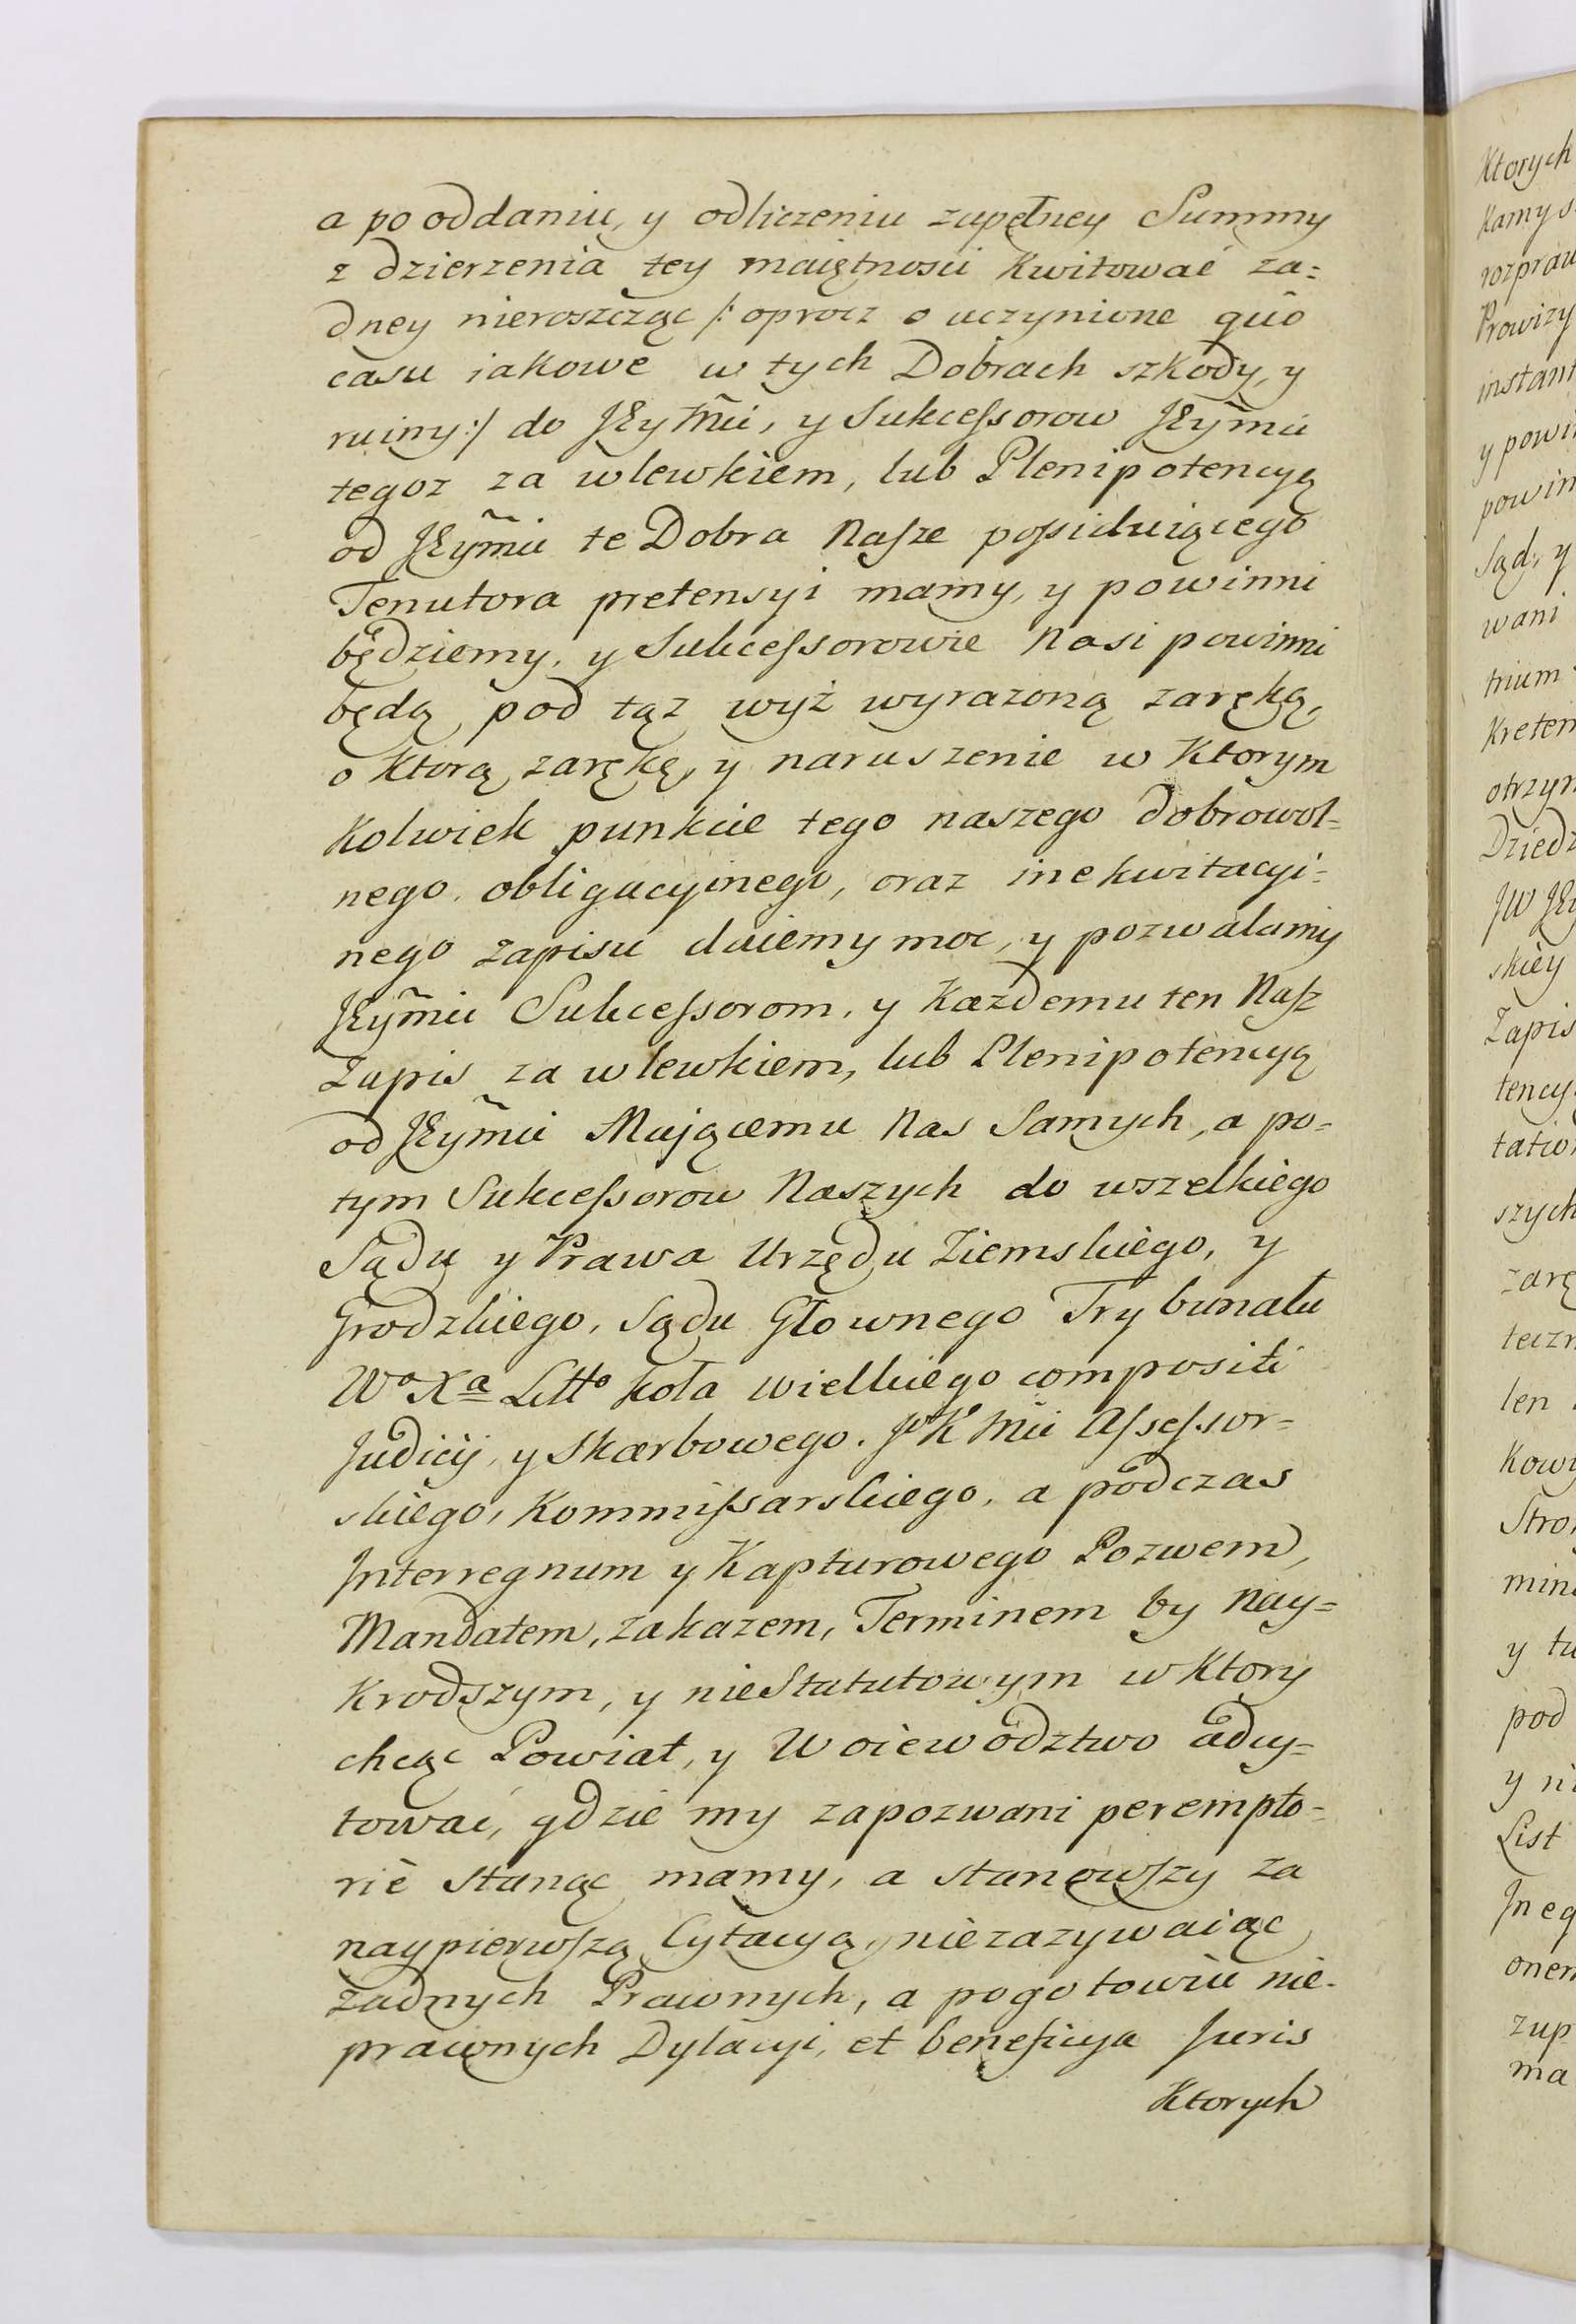 a po oddaniu, y odliczeniu zupełney Summy
z dzierzenia tey maiętnosci Kwitować za=
dney nieroszcząc /: oprocz o uczynione quo
casu iakowe w tych Dobrach szkody, y
ruiny :/ do JEyMci, y Sukcessorow JEymci
tegoz za wlewkiem, lub Plenipotencyą
od JEymci te Dobra Nasze possiduiącego
Tenutora pretensyi mamy, y powinni
będziemy, y Sukcessorowie Nasi powinni
będą, pod tąz wyż wyrazoną zaręką,
o Ktorą zarękę, y naruszenie w Ktorym
Kolwiek punkcie tego naszego dobrowol=
nego obligacyinego, oraz inekwitacyi=
nego zapisu daiemy moc, y pozwalamy
JEymci Sukcessorom, y Kazdemu ten Nasz
Zapis za wlewkiem, lub Plenipotencyą
od JEymci Mającemu Nas Samych, a po=
tym Sukcessorow Naszych do wszelkiego
Sądu y Prawa Urzędu Ziemskiego, y
Grodzkiego, Sądu Głownego Trybunału
Wo Xa Litto koła wielkiego compositi
Judicij, y Skarbowego. JoK Mci Assessor=
skiego, Kommissarskiego, a podczas
Interregnum y Kapturowego Pozwem,
Mandatem, zakazem, Terminem by Nay=
Krodszym, y nieStatutowym w Ktory
chcąc Powiat, y Woiewodztwo adcy=
tować, gdzie my zapozwani perempto=
riè stanąc mamy, a stanowszy za
naypierwszą Cytacyą, niezazywaiąc
zadnych Prawnych, a pogotowiu nie=
prawnych Dylacyi, et beneficya Juris
Ktorych
Ktorych
rozpraw
Prowizy
instant
Sąd, y
wani
trium
Dziedz
skiey
Zapis
szych
len
pod
List
zup
ma